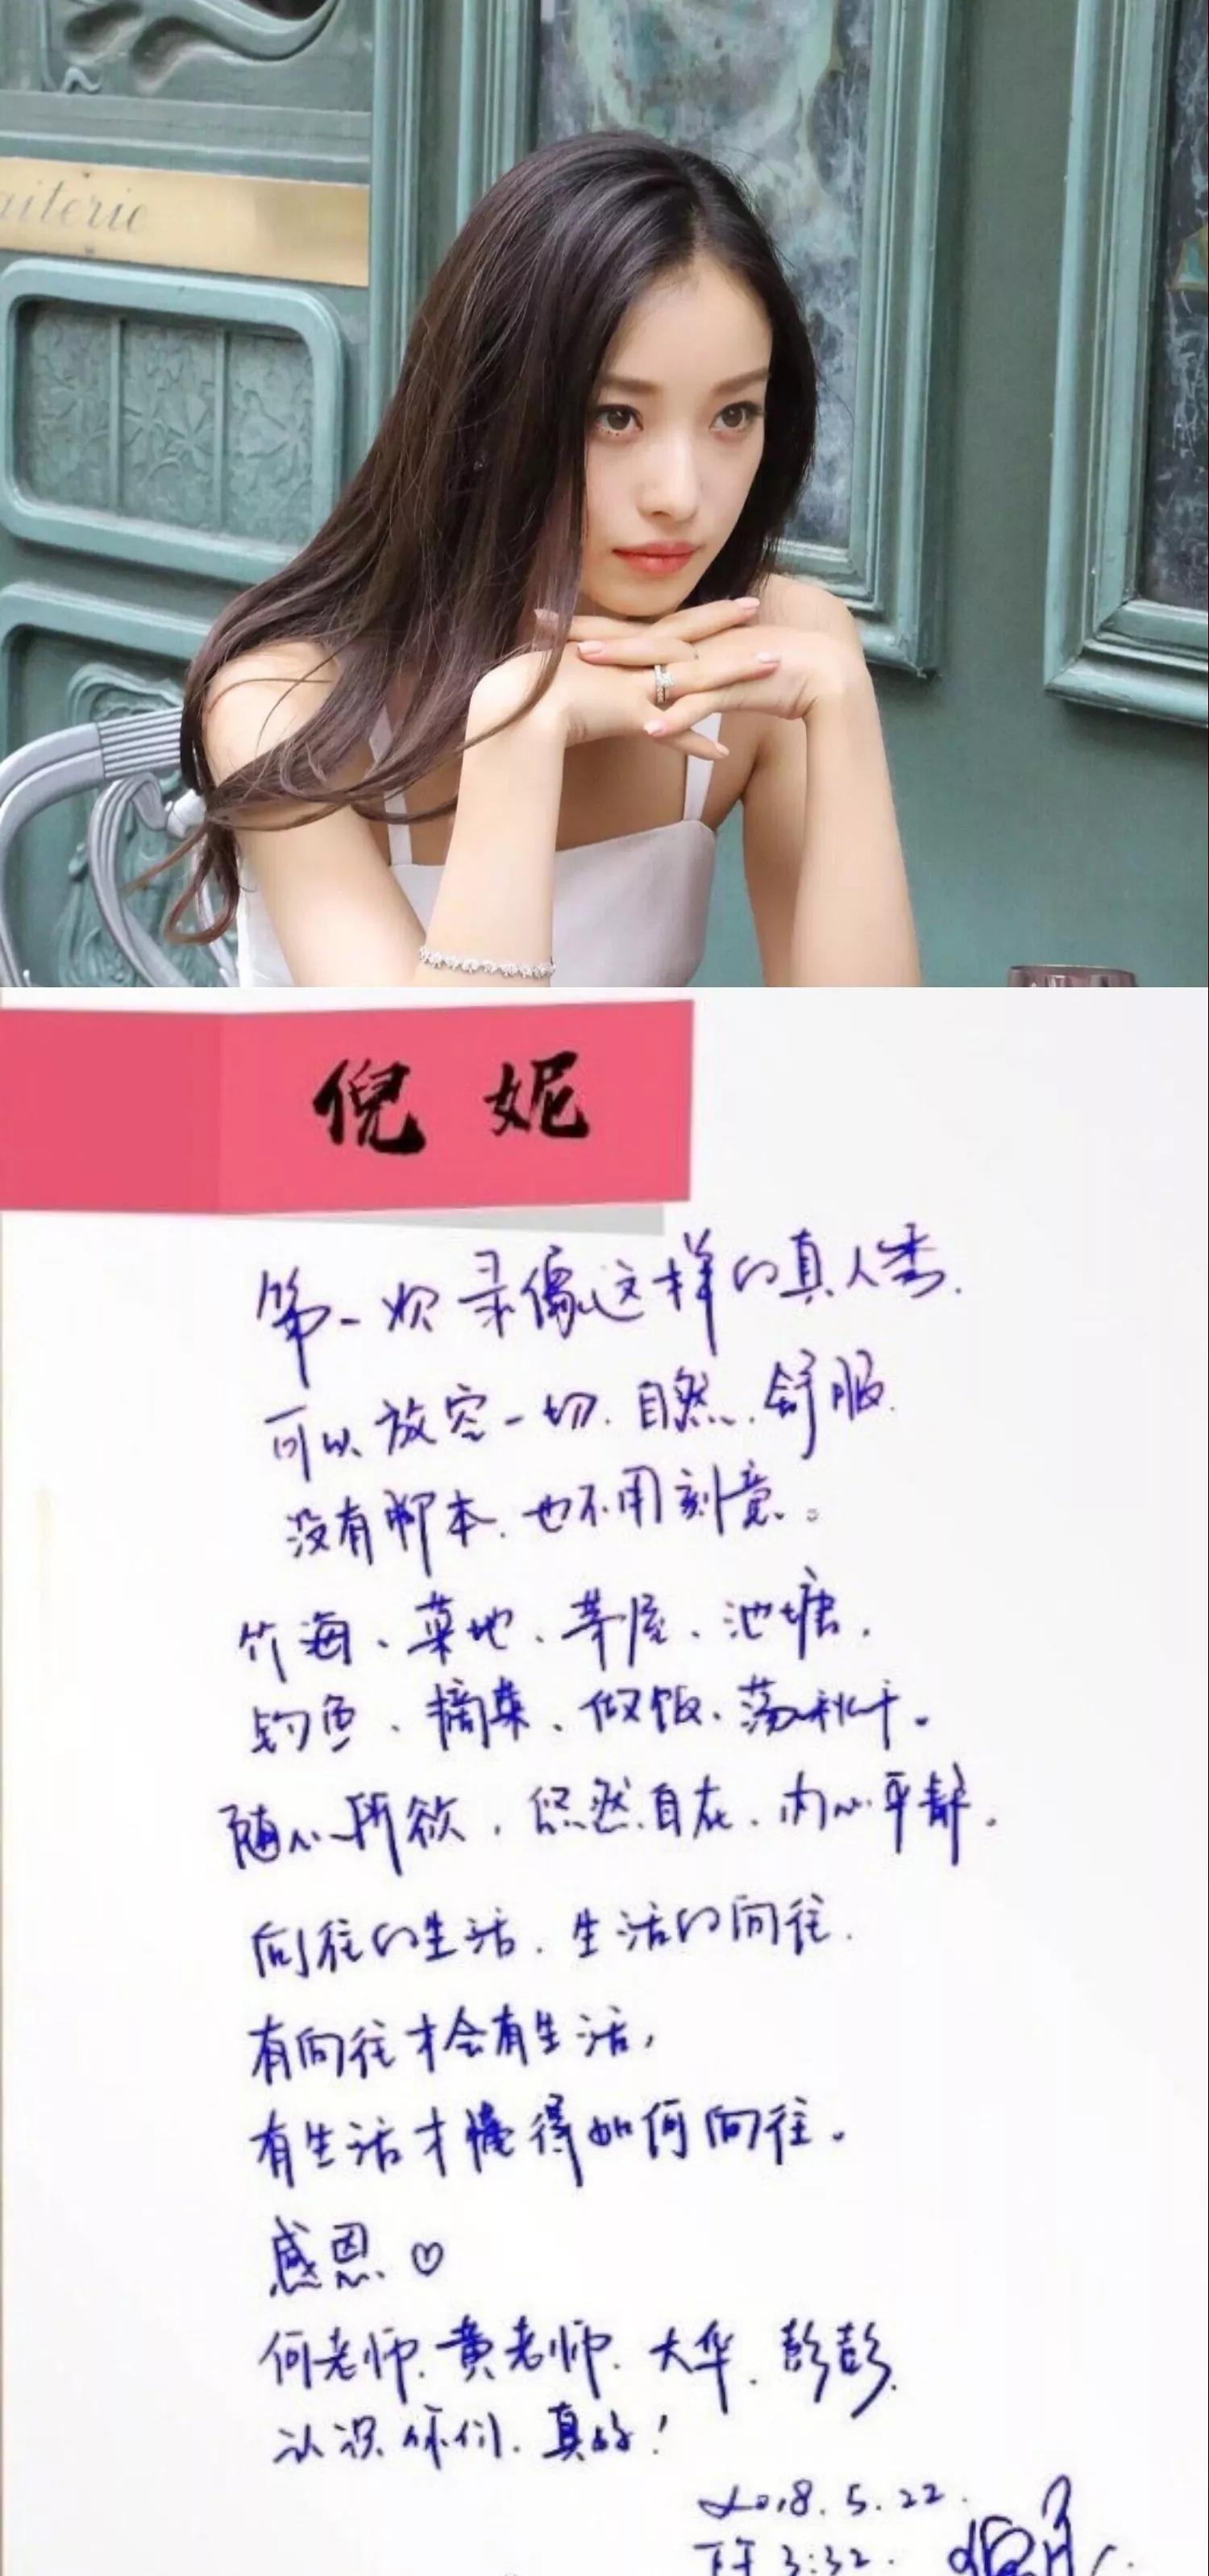 aiterie
倪妮
第一次录像这样的真人秀.
可以放空一切.自然.舒服.
没有脚本.也不用刻意。
竹海、菜地、茅屋、池塘.
钓鱼、摘菜、做饭、荡秋千。
随心所欲.悠然自在.内心平静.
向往的生活.生活的向往.
有向往才会有生活,
有生活才懂得如何向往。
感恩♡
何老师.黄老师.大华.彭彭.
认识你们.真好!
2018.5.22.
下午3:32.